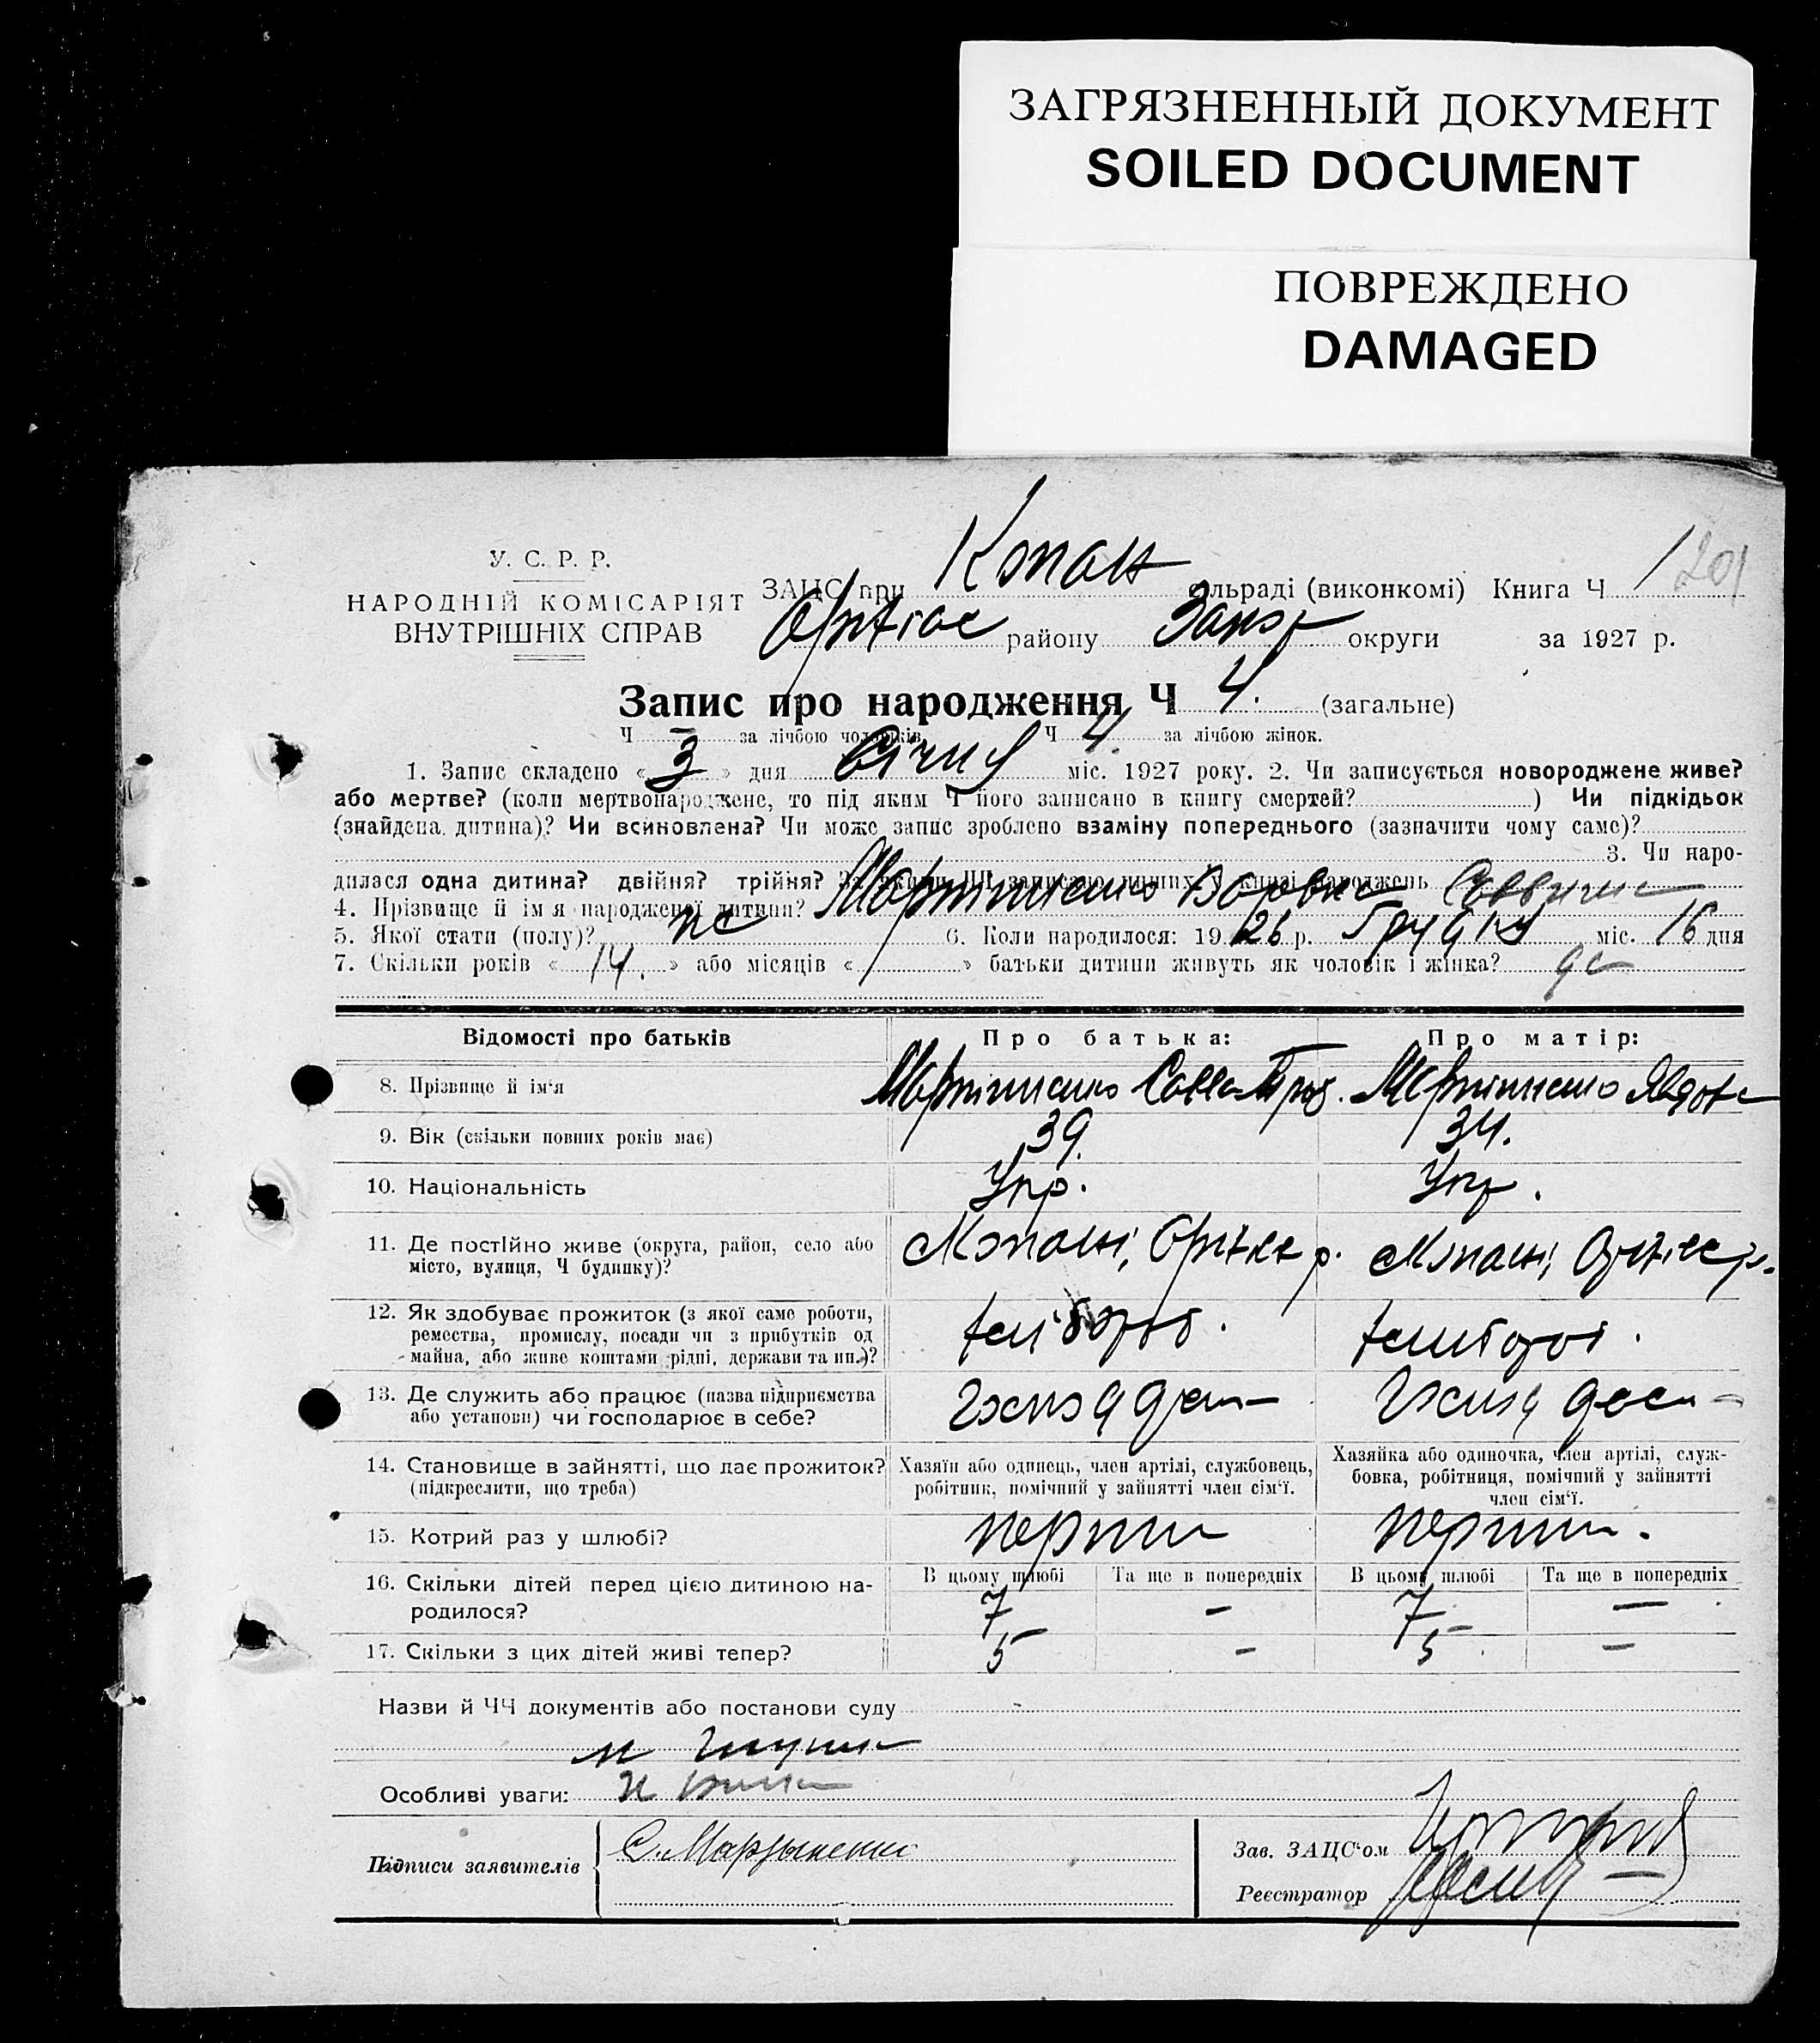 ЗАГРЯЗНЕННЫЙ ДОКУМЕНТ
SOILED DOCUMENT
ПОВРЕЖДЕНО
DAMAGED
У. С. Р. Р.
НАРОДНІЙ КОМІСАРІЯТ
ВНУТРІШНІХ СПРАВ
ЗАЦС при Копан сільраді (виконкомі) Книга Ч 1 201
району округи за 1927 р.
Запис про народження Ч 4. (загальне)
Ч — за лічбою чоловіків. Ч 4. за лічбою жінок.
1. Запис складено « 3 » дня Січня міс. 1927 року. 2. Чи записується новороджене живе?
або мертве? (коли мертвонароджене, то під яким Ч його записано в книгу смертей? ) Чи підкідьок
(знайдена дитина)? Чи всиновлена? Чи може запис зроблено взаміну попереднього (зазначити чому саме)?
3. Чи наро-
дилася одна дитина? двійня? трійня? За якими ЧЧ записано инших у книзі народжень
4. Прізвище й ім'я народженої дитини? Мартиненко Варвара Саввична
5. Якої стати (полу)? жс 6. Коли народилося: 19 26 р. Грудня міс. 16 дня
7. Скільки років « 14. » або місяців « » батьки дитини живуть як чоловік і жінка? да
Відомості про батьків
Про батька:
Про матір:
8. Прізвище й ім'я
Мартиненко Савва
Мартиненко Явдоха
9. Вік (скільки повних років має)
39.
34.
10. Національність
Укр.
Укр.
11. Де постійно живе (округа, район, село або
місто, вулиця, Ч будинку)?
12. Як здобуває прожиток (з якої саме роботи,
ремества, промислу, посади чи з прибутків од
майна, або живе коштами рідні, держави та ин.)?
хлібороб.
хлібороб.
13. Де служить або працює (назва підприємства
або установи) чи господарює в себе?
14. Становище в зайнятті, що дає прожиток?
(підкреслити, що треба)
Хазяїн або одинець, член артілі, службовець,
робітник, помічний у зайнятті член сім'ї.
Хазяйка або одиночка, член артілі, служ-
бовка, робітниця, помічний у зайнятті
член сім'ї.
15. Котрий раз у шлюбі?
перший
перший.
16. Скільки дітей перед цією дитиною на-
родилося?
В цьому шлюбі
Та ще в попередніх
В цьому шлюбі
Та ще в попередніх
7 — 7 —
17. Скільки з цих дітей живі тепер?
5 — 5 —
Назви й ЧЧ документів або постанови суду
Особливі уваги:
Підписи заявителів
С. Мартыненко
Зав. ЗАЦС'ом
Реєстратор